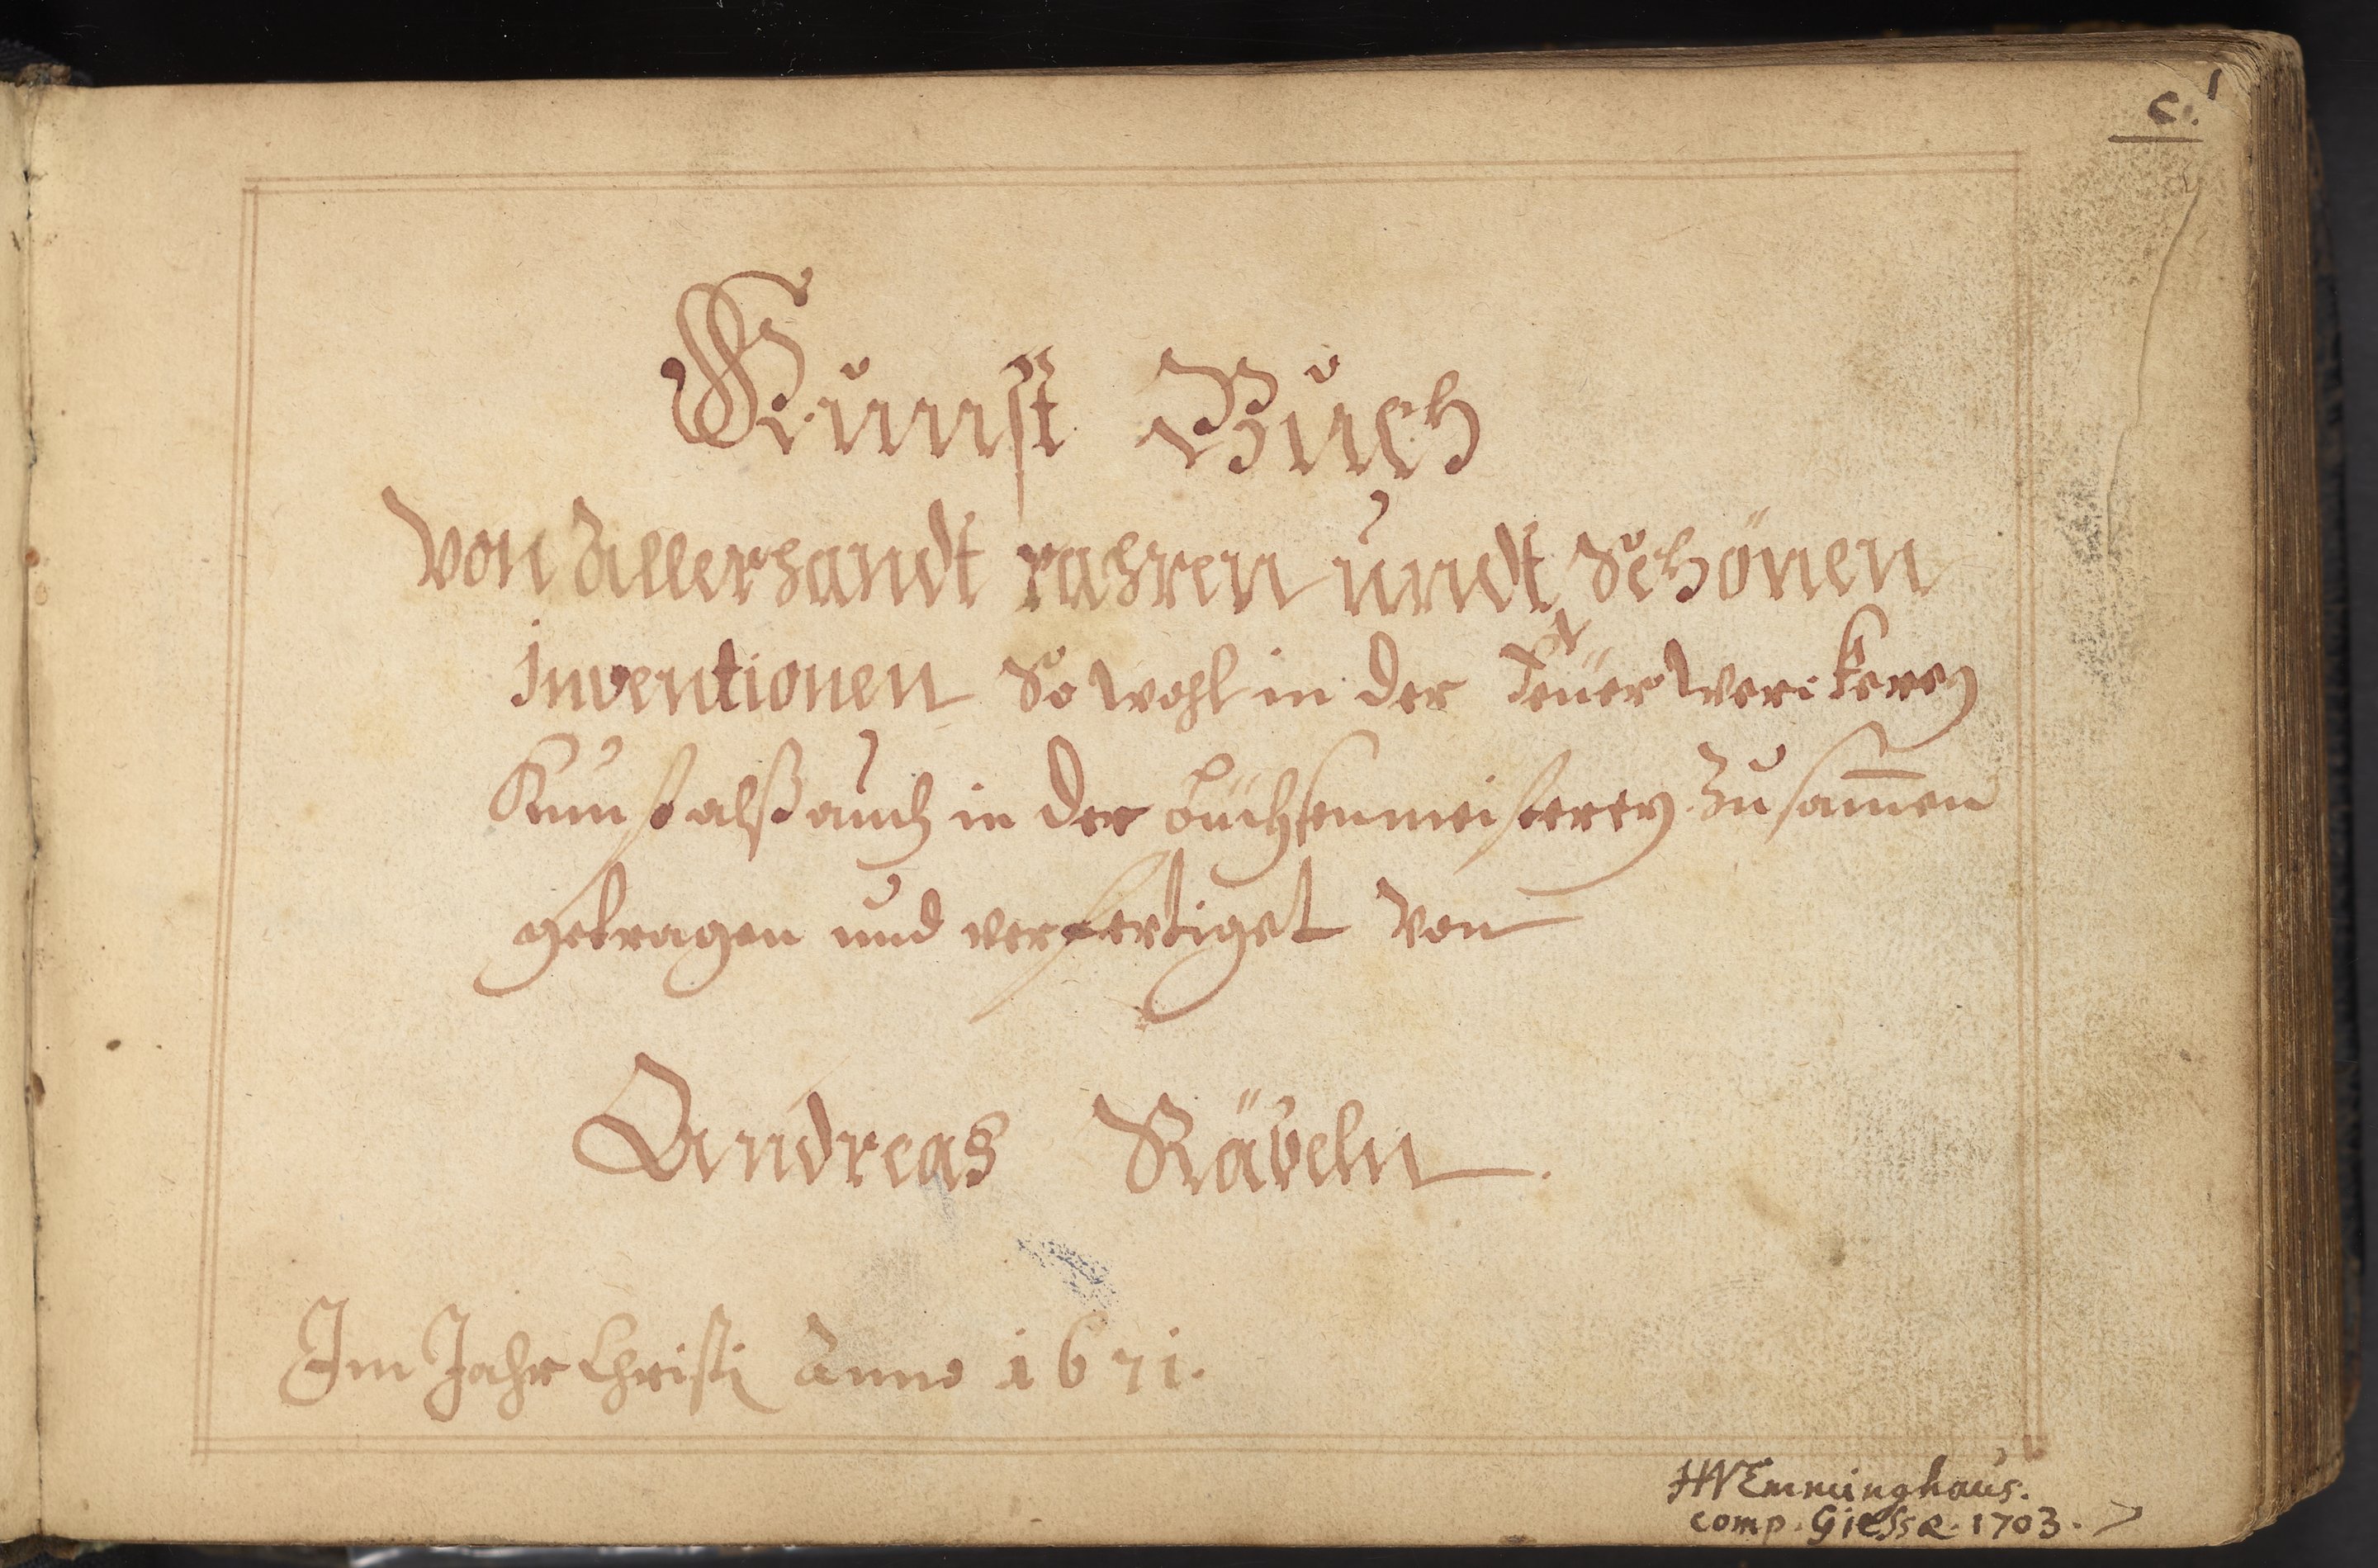 C. 1
Kunst Buch
Von Allerhandt rahren undt Schönen
Inventionen So wohl in der Feüer Werckerey
Kunst alß auch in der büchsenmeisterey Zusam̄en
getragen und verfertiget von
Andreas Räbeln.
Im Jahr Christi Anno 1671.
HNEmminghaus.
comp. Giessæ. 1703.